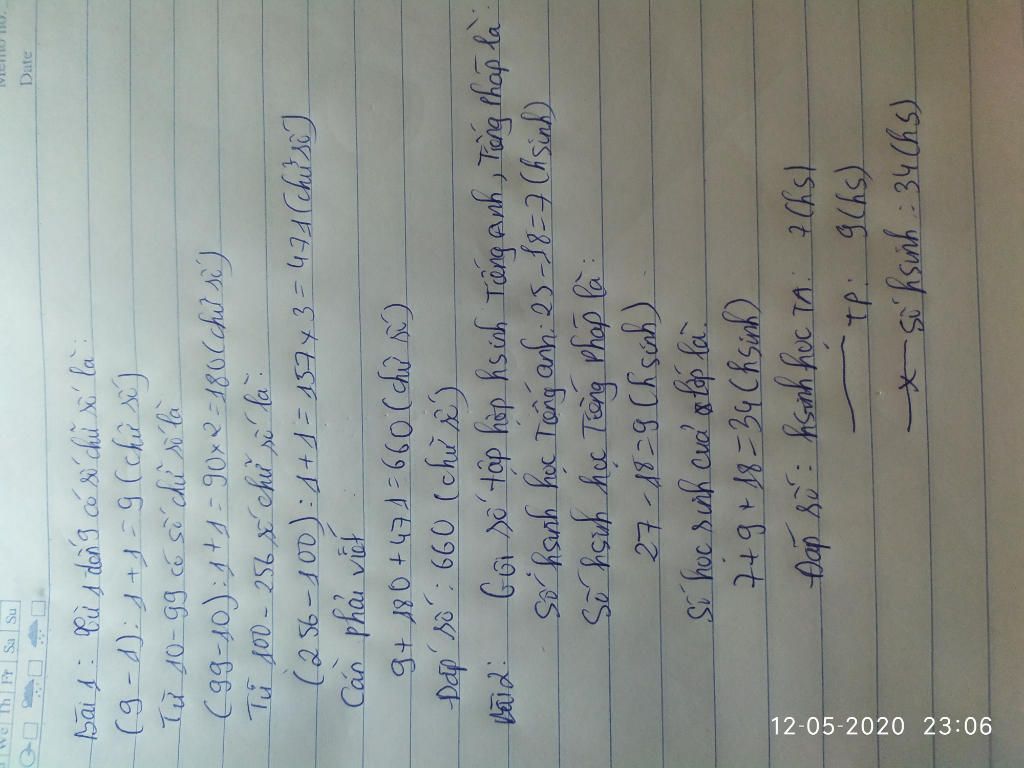 Memo No.
Date
We Th Fr Sa Su
Bài 1: Từ 1 đến 9 có số chữ số là:
(9 - 1) : 1 + 1 = 9 (chữ số)
Từ 10 - 99 có số chữ số là
(99 - 10) : 1 + 1 = 90 x 2 = 180 (chữ số)
Từ 100 - 256 số chữ số là:
(256 - 100) : 1 + 1 = 157 x 3 = 471 (chữ số)
Cần phải viết
9 + 180 + 471 = 660 (chữ số)
Đáp số: 660 (chữ số)
Bài 2: Gọi số tập hợp hsinh Tiếng anh, Tiếng Pháp là:
Số hsinh học Tiếng anh: 25 - 18 = 7 (hsinh)
Số hsinh học Tiếng Pháp là:
27 - 18 = 9 (hsinh)
Số học sinh của lớp là:
7 + 9 + 18 = 34 (hsinh)
Đáp số: hsinh học TA: 7 (hs)
TP: 9 (hs)
x số hsinh: = 34 (hs)
12-05-2020 23:06